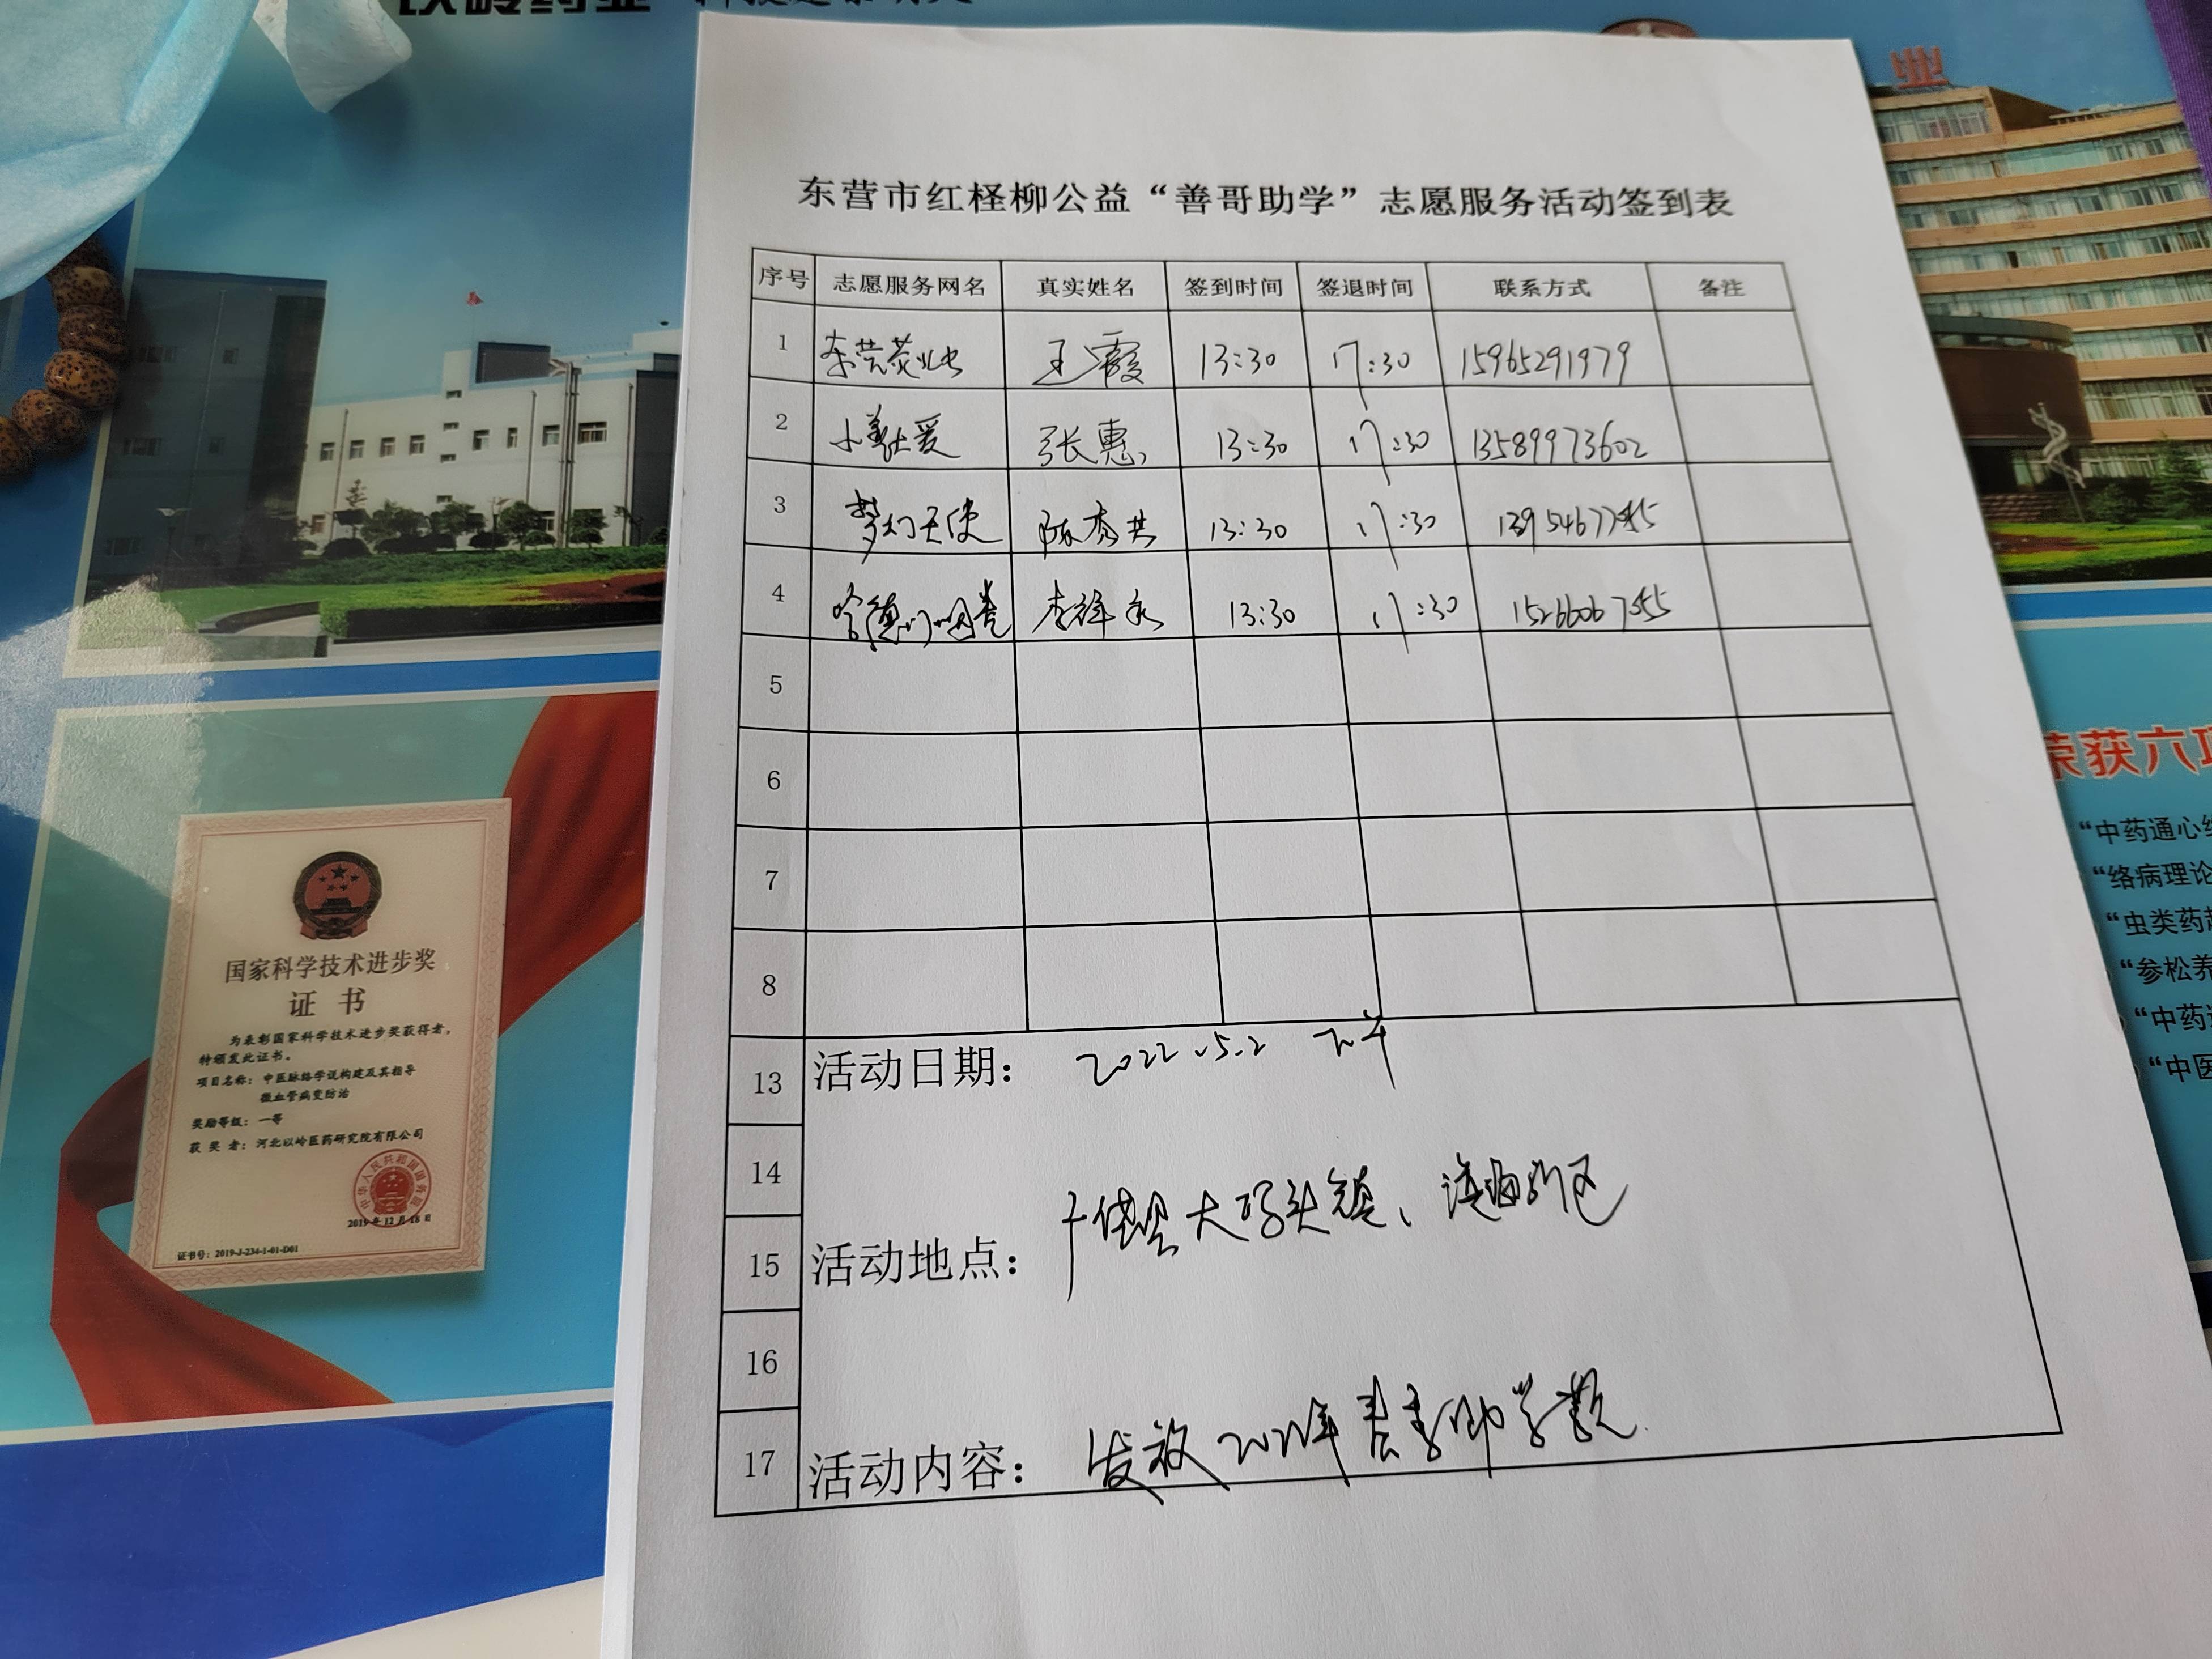 业
东营市红柽柳公益“善哥助学”志愿服务活动签到表
序号 志愿服务网名 真实姓名 签到时间 签退时间 联系方式 备注
1 王霞 13:30 17:30 15965291979
2 张惠 13:30 17:30 13589973602
3 梦幻天使 13:30 17:30
4 哈德门烟卷 李祥永 13:30 17:30
5
6
7
8
13 活动日期： 2022.5.2 下午
14
15 活动地点： 大码头镇、滨海新区
16
17 活动内容： 发放2022年春季助学款
国家科学技术进步奖
证书
为表彰国家科学技术进步奖获得者，
特颁发此证书。
项目名称： 中医脉络学说构建及其指导
微血管病变防治
奖励等级： 一等
获奖者： 河北以岭医药研究院有限公司
2019年12月18日
证书号：2019-J-234-1-01-D01
荣获六项
“中药通心络
“络病理论
“虫类药
“参松养
“中药
“中医